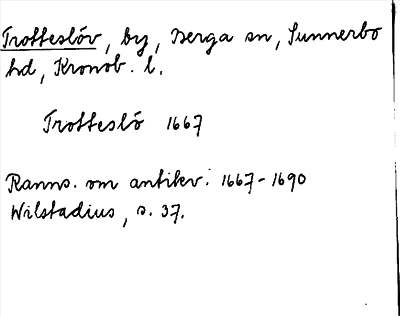 Trotteslöv, by, Berga sn, Sunnerbo
hd, Kronob. l.
Trotteslö 1667
Ranns. om antikv. 1667-1690
Wilstadius, s. 37.